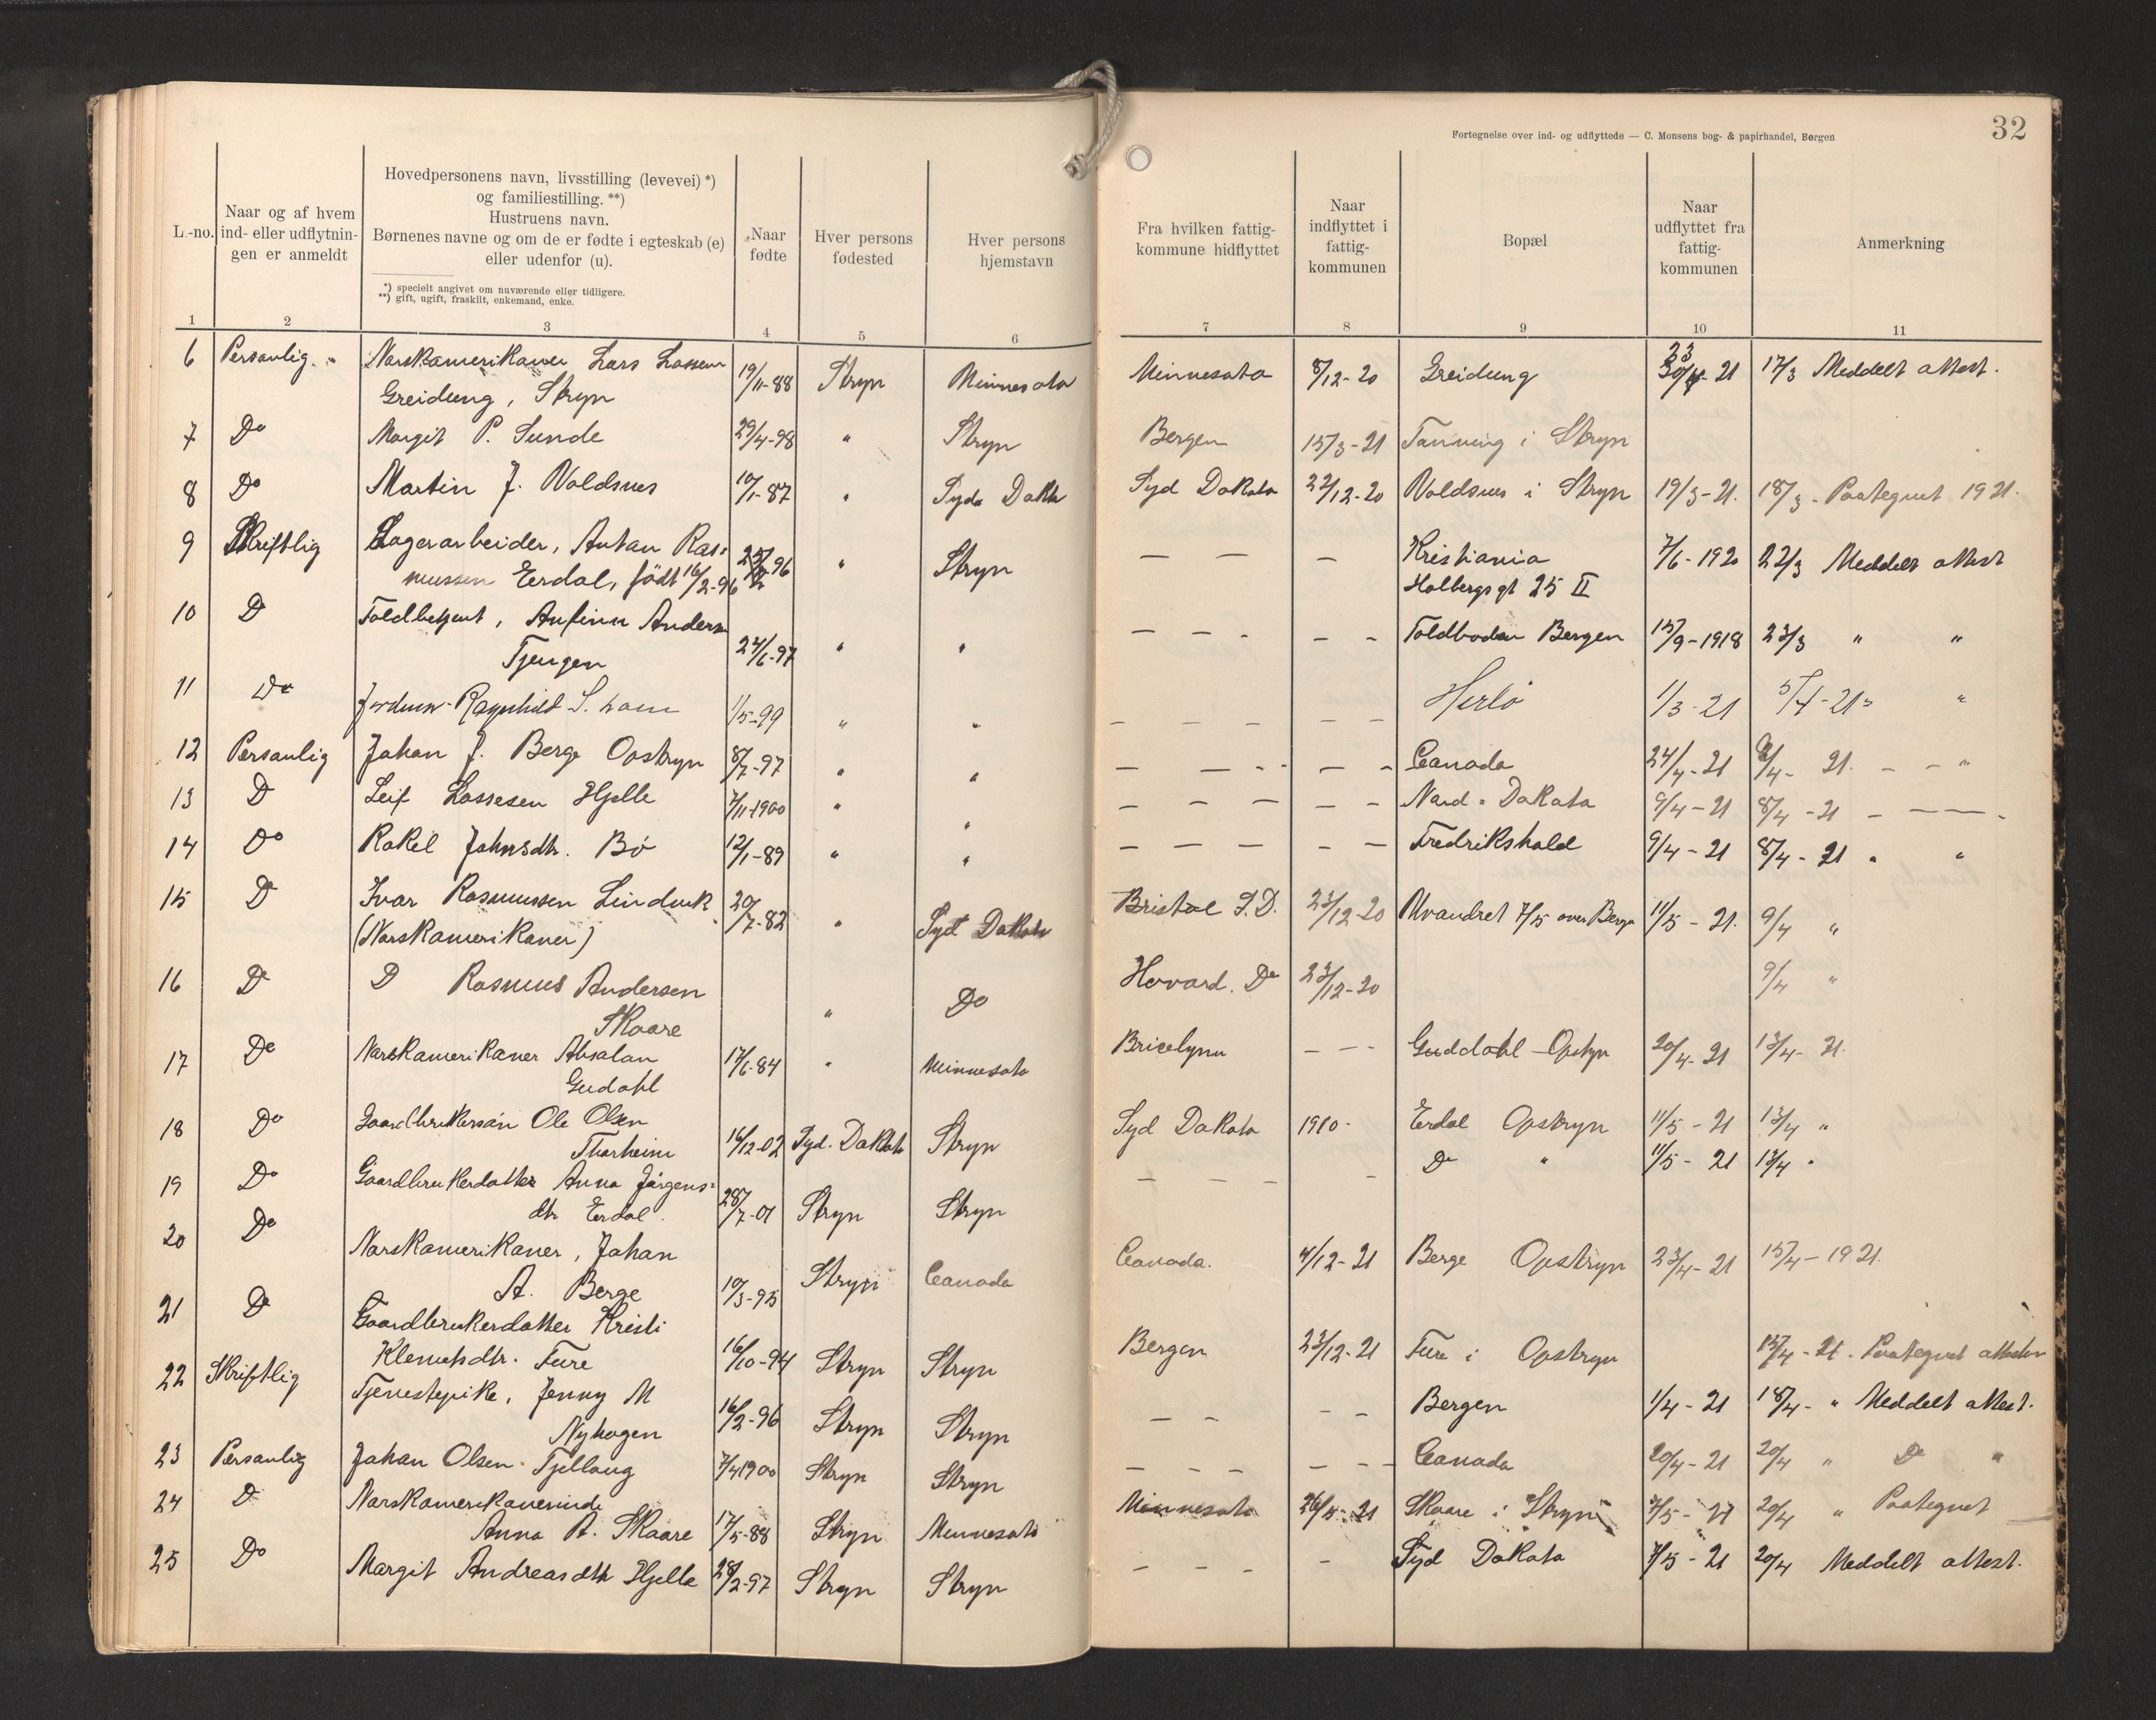 32
Fortegnelse over ind- og udflyttede — C. Monsens bog- & papirhandel, Bergen
L.-no.
Naar og af hvem
ind- eller udflytnin-
gen er anmeldt
Hovedpersonens navn, livsstilling (levevei) *)
og familiestilling. **)
Hustruens navn.
Børnenes navne og om de er fødte i egteskab (e)
eller udenfor (u).
*) specielt angivet om nuværende eller tidligere.
**) gift, ugift, fraskilt, enkemand, enke.
Naar
fødte
Hver persons
fødested
Hver persons
hjemstavn
Fra hvilken fattig-
kommune hidflyttet
Naar
indflyttet i
fattig-
kommunen
Bopæl
Naar
udflyttet fra
fattig-
kommunen
Anmerkning
1 2 3 4 5 6 7 8 9 10 11
6 Personlig. Norskamerikaner Lars Lassen 19/11-88 Stryn Minnesota Minnesota 8/12-20 Greidung 23/4-21 17/3 Meddelt attest.
Greidung, Stryn
7 Do Margit P. Sunde 29/4-98 " Stryn Bergen 15/3-21 Tonning i Stryn
8 Do Martin J. Voldsnes 10/1-87 " Syd Dakota Syd Dakota 22/12-20 Voldsnes i Stryn 19/3-21. 18/3. Paategnet 1921.
9 Skriftlig Lagerarbeider, Anton Ras= " Stryn — — — Kristiania 7/6-1920 22/3 Meddelt attest
mussen Erdal, født 16/2-96 Holbergs gt 25 II
10 D Toldbetjent, Anfinn Anders " " — — - — — Toldboden Bergen 15/9-1918 23/3 " "
Tjugen 24/6-97
11 Do Ragnhild S. 1/5-99 " " — — — — — Herlø 1/3-21 5/4-21 " "
12 Personlig Johan J. Berge Opstryn 8/7-97 " " — — - - — — Canada 24/4-21 21. - - "
13 D Leif Lassesen Hjelle 7/11-1900 " " — — — — — Nord-Dakota 9/4-21 8/4-21 - —
14 Do Rakel Johnsdtr. Bø 12/1-89 " " — — — — — Fredrikshald 9/4-21 8/4-21 " "
15 D Ivar Rasmussen Lindvik 20/7-82 " Syd Dakota Bristol S.D. 23/12-20 Utvandret 7/5 over Bergen 11/5-21. 9/4 "
(Norskamerikaner)
16 D D Rasmus Andersen " Do Hovard. Do 23/12-20 9/4 "
Skaare
17 Do Norskamerikaner Absalon 17/6-84 " Minnesota Bricelynn - - - Guddahl Opstryn 20/4-21 13/4-21.
Gudahl
18 Do Gaardbrukersøn Ole Olsen 16/12-02 Syd. Dakota Stryn Syd Dakota 1910- Erdal Opstryn 11/5-21 13/4 "
Thorheim
19 Do Gaardbrukerdatter Anna Jørgens= 28/7-01 Stryn Stryn — — — — D " 11/5-21 13/4 "
dtr Erdal.
20 Do Norskamerikaner, Johan 10/3-95 Stryn Canada Canada. 4/12-21 Berge Opstryn 23/4-21 15/4-1921.
A. Berge
21 D Gaardbrukerdatter Kristi 16/10-94 Stryn Stryn Bergen 23/12-21 Fure i Opstryn 15/4-21. Paategnet attesten
Klemetsdtr. Fure
22 Skriftlig Tjenestepike, Jenny M 16/2-96 Stryn Stryn — — — — Bergen 1/4-21 18/4- " Meddelt attest.
Nyhagen
23 Personlig Johan Olsen Tjellaug 7/4 1900 Stryn Stryn — — — — — — Canada 20/4-21 20/4 " D "
24 D Norskamerikanerinde 17/5-88 Stryn Minnesota Minnesota Skaare i Stryn 7/5-21 20/4 " Paategnet
Anna A. Skaare
25 Do Margit Andreasdtr Hjelle 28/2-97 Stryn Stryn — — — — Syd Dakota 7/5-21 20/4 Meddelt attest.